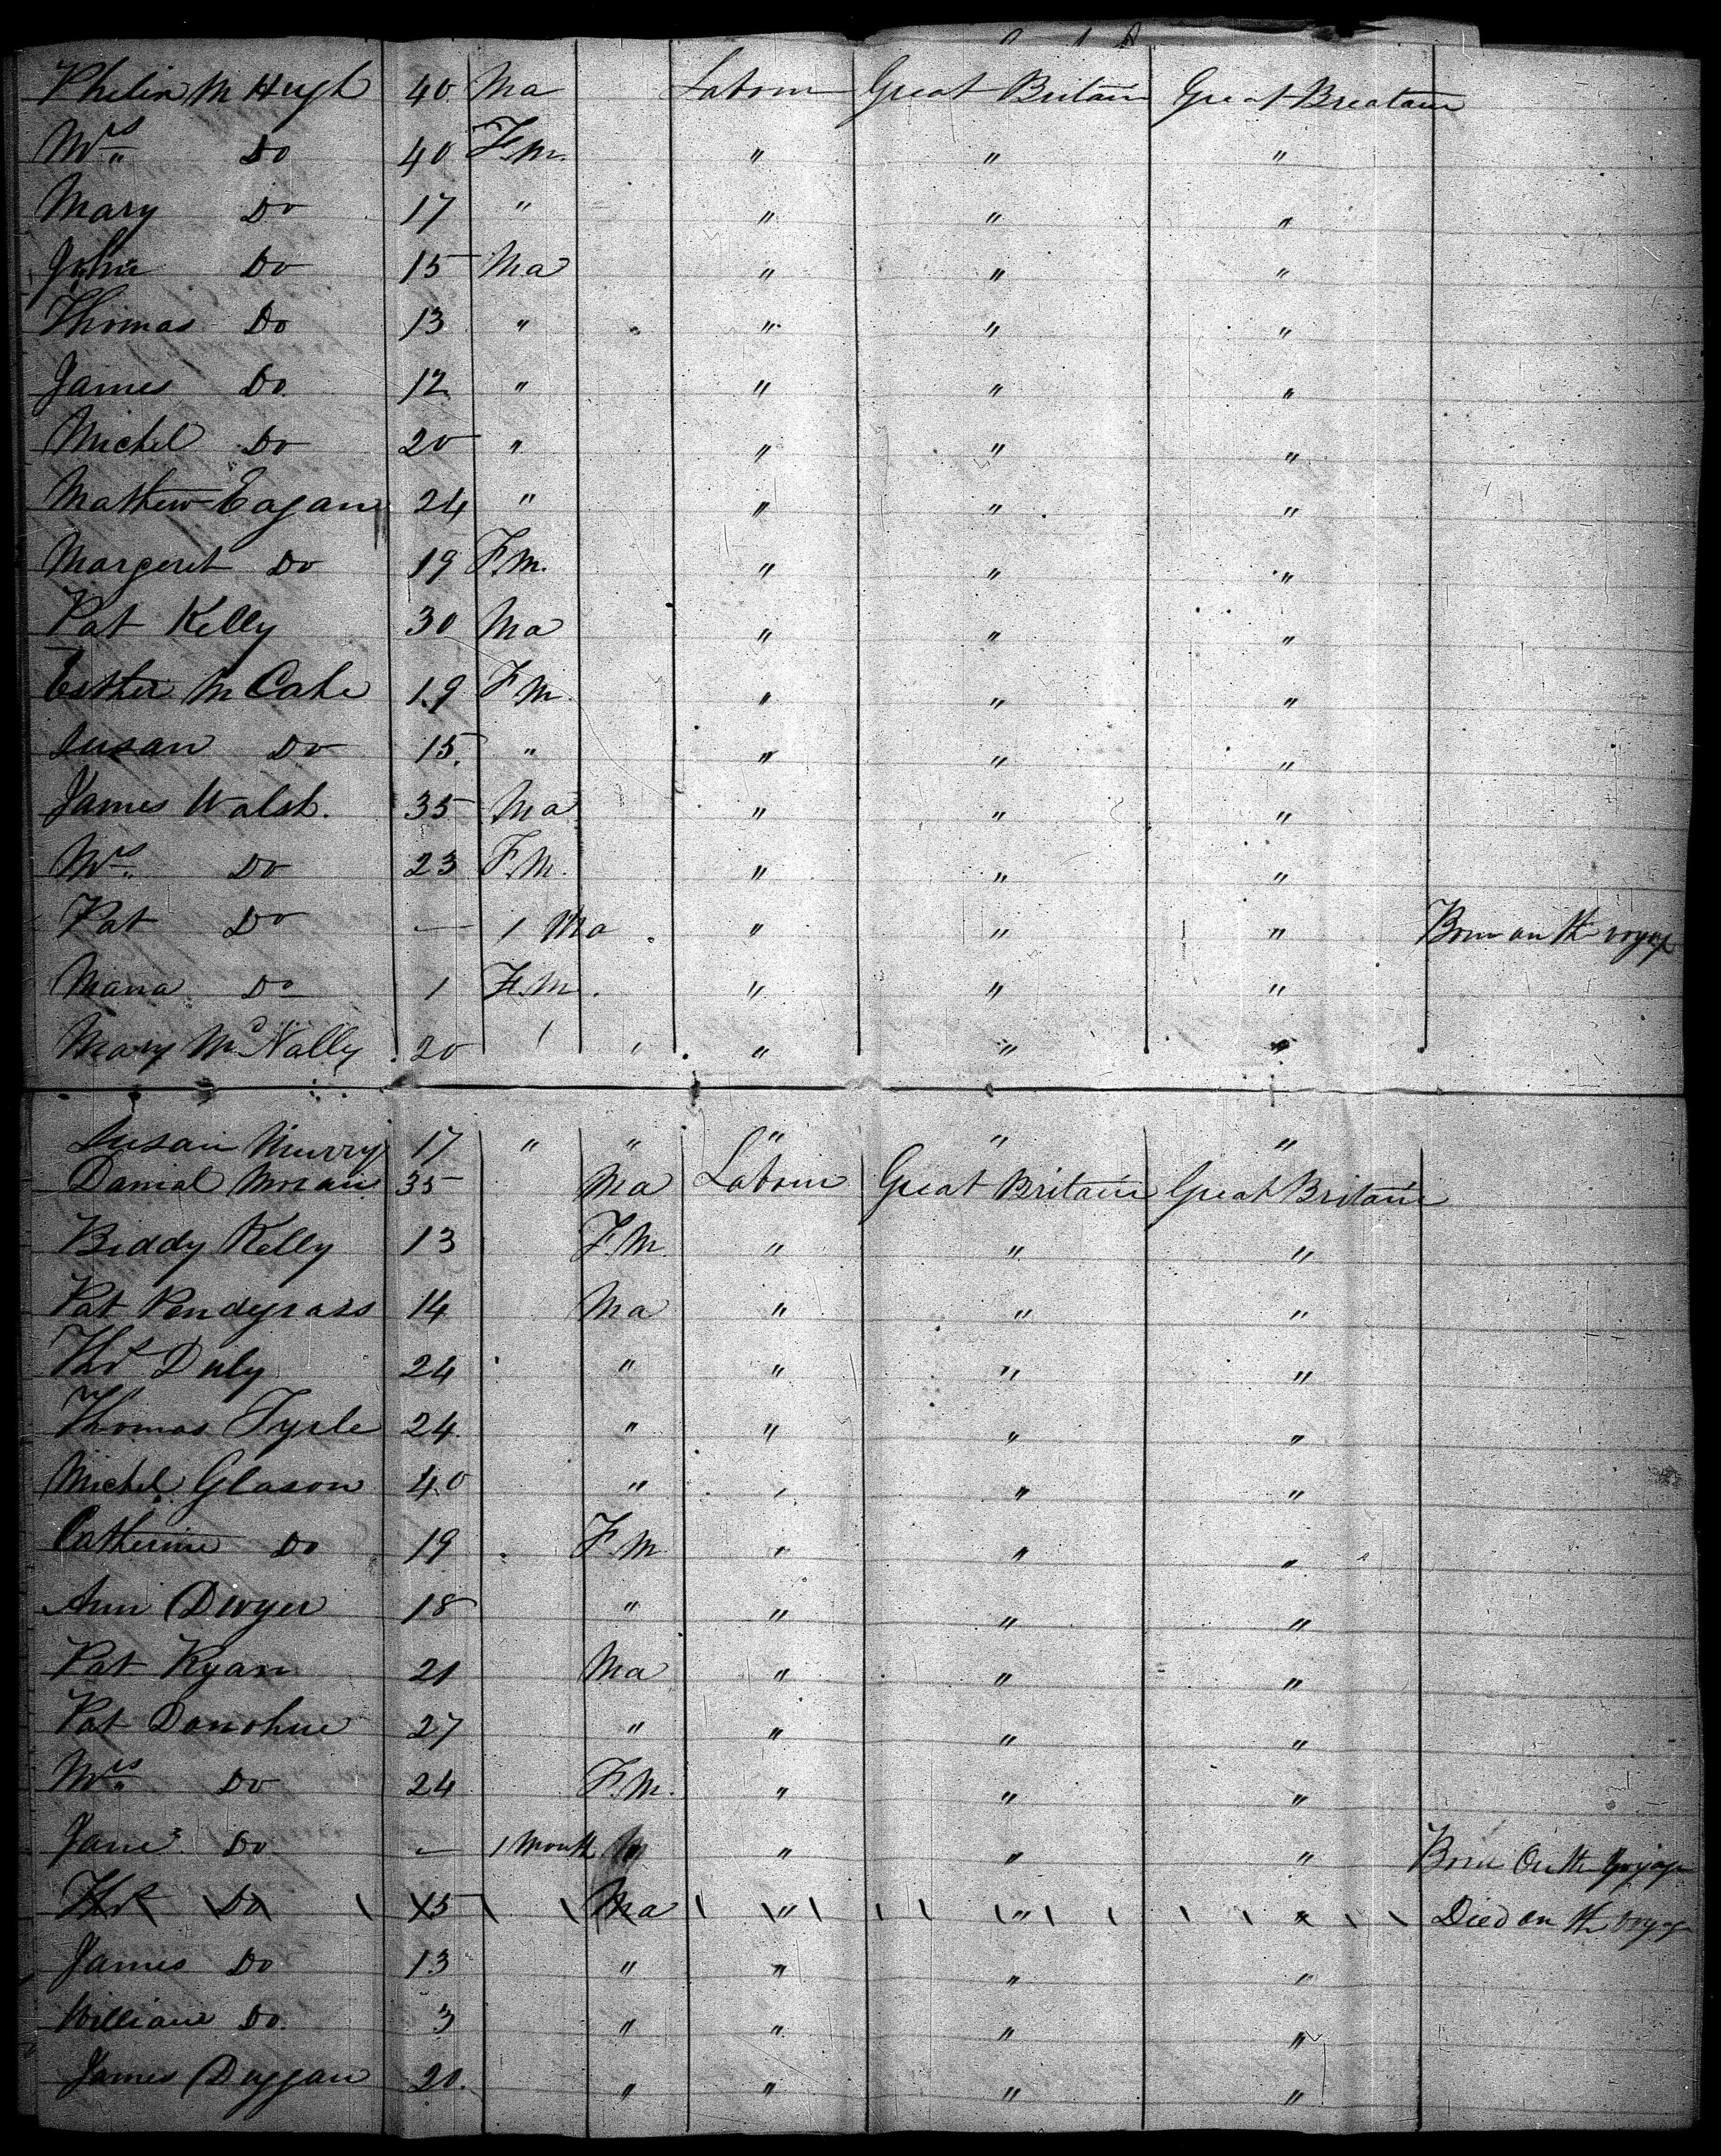 Philix McHugh 40 Ma Labour Great Britain Great Breatain
Mrs Do 40 F.m. " " "
Mary Do 17 " " " "
John Do 15 Ma " " "
Thomas Do 13 " " " "
James Do 12 " " " "
Michel Do 20 " " " "
Mathew Eagan 24 " " " "
Margeret Do 19 F.m. " " "
Pat Kelly 30 Ma " " "
Esther McCabe 19 F m " " "
Susan Do 15 " " " "
James Walsh. 35 Ma " " "
Mrs Do 23 F.m. " " "
Pat Do — 1 Ma " " " Born on the voyage
Maria Do 1 F.m. " " "
Mary McNally 20 " " " "
Susan Murry 17 " " " " "
Danial Moran 35 Ma Labour Great Britain Great Britain
Biddy Kelly 13 F.m " " "
Pat Pendygrass 14 Ma " " "
Thos Duly 24 " " " "
Thomas Tyrle 24 " " " "
Michel Glason 40 " " " "
Catherine Do 19 F.m " " "
Ann Dwyer 18 " " " "
Pat Ryan 21 Ma " " "
Pat Donohue 27 " " " "
Mrs Do 24 F.m. " " "
Jane Do — 1 Month " " " Born On the Voyage
Thos Do 15 Ma " " " Died on the voyage
James Do 13 " " " "
William Do. 3 " " " "
James Duggan 20. " " " "